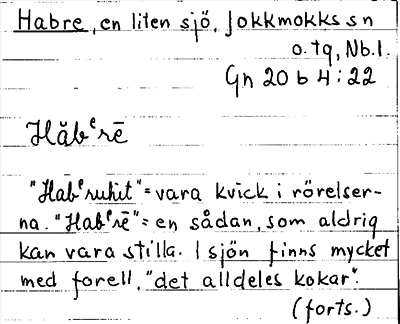 Habre, en liten sjö, Jokkmokks sn
o. tq, Nb.l.
Gn 20 b 4:22
Hăbᵉrē
"Habᵉruhit" = vara kvick i rörelser-
na. "Habᵉrē" = en sådan, som aldrig
kan vara stilla. I sjön finns mycket
med forell, "det alldeles kokar".
(forts.)